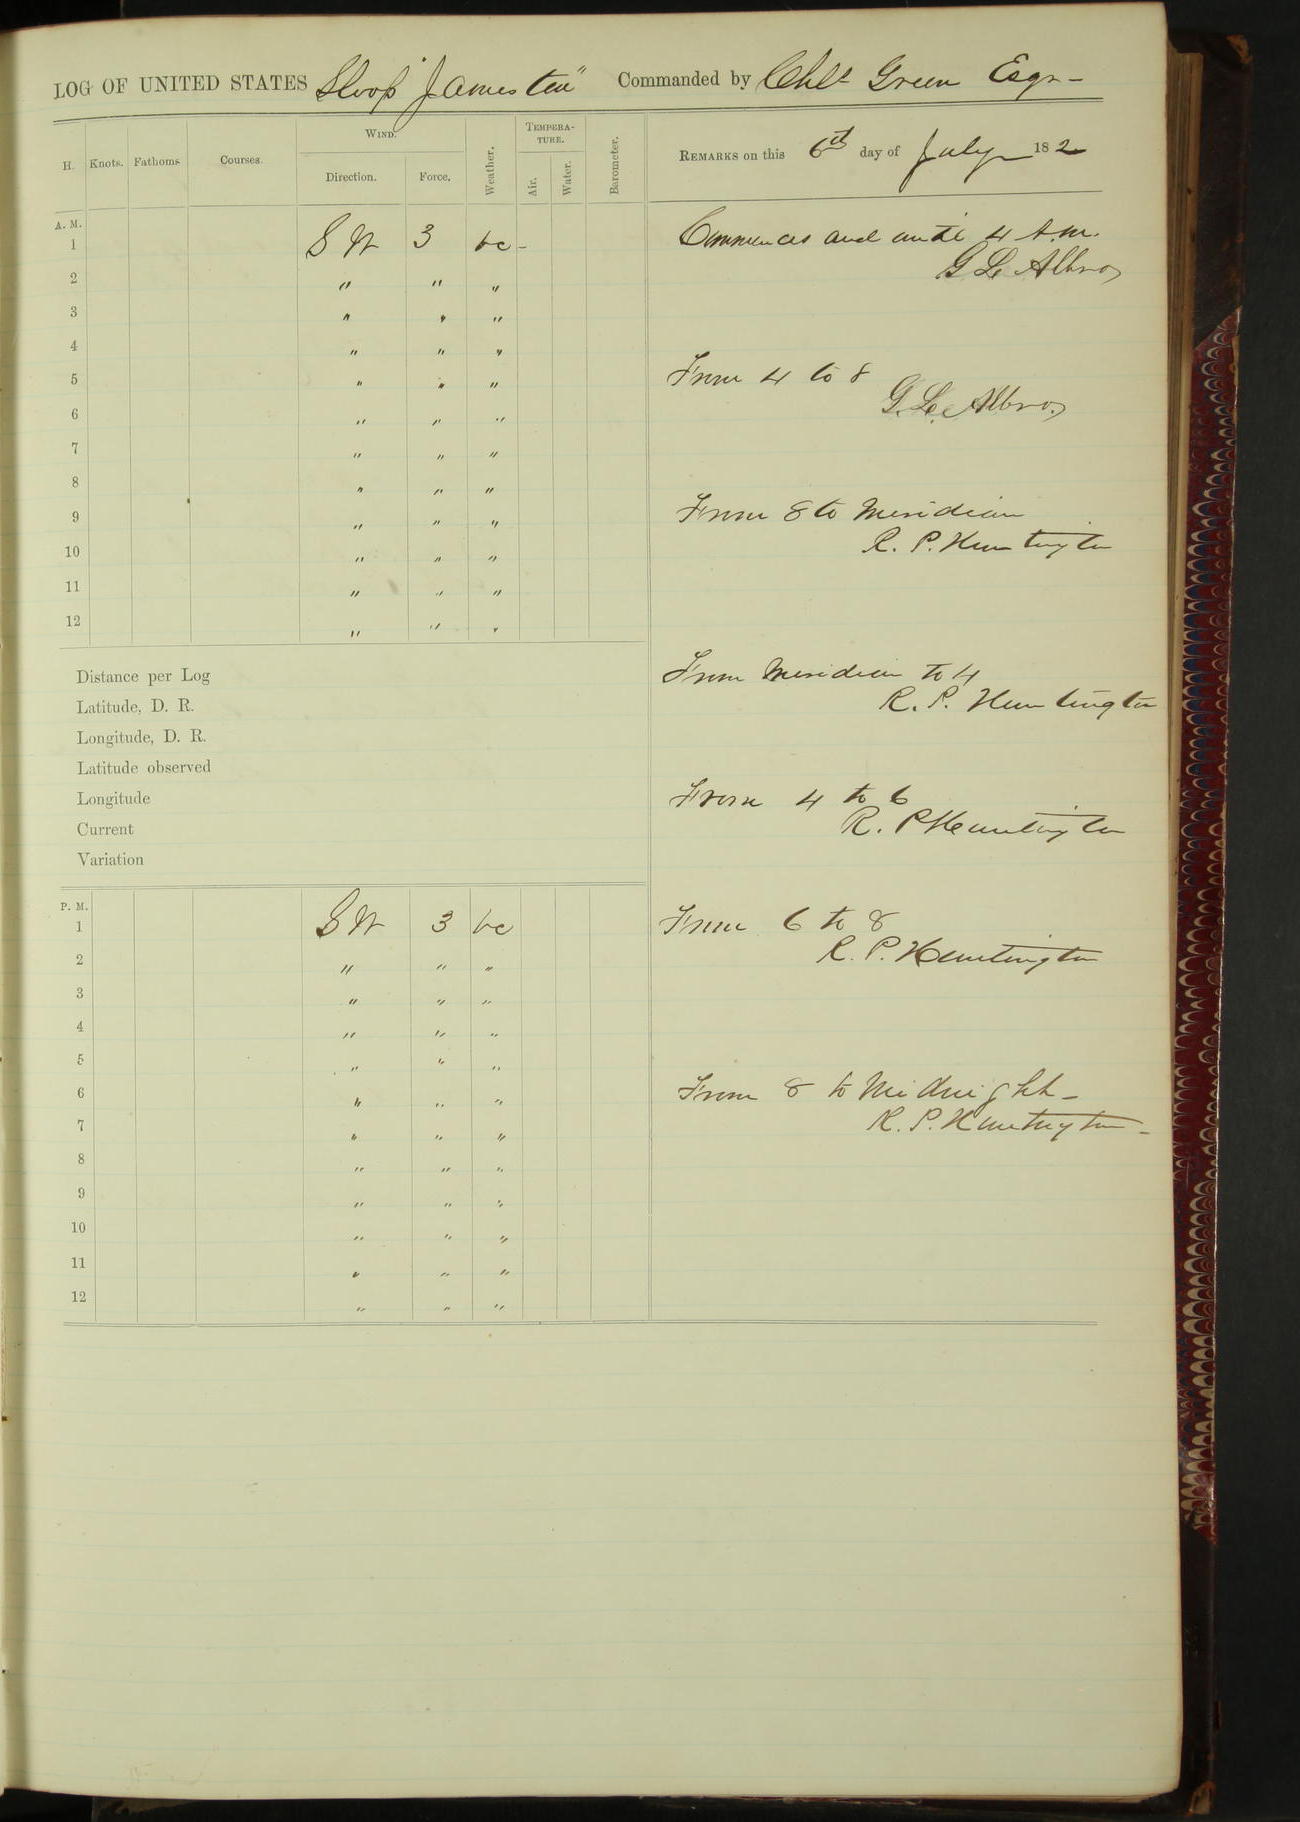 LOG OF UNITED STATES Sloop "Jamestn" Commanded by Chls Green Esqr -
H. Knots. Fathoms. Courses. WIND. Direction. Force. Weather. TEMPERATURE. Air. Water. Barometer. REMARKS on this 6th day of July 18 2
A. M.
1 S W 3 bc -
2 " " "
3 " " "
4 " " "
5 " " "
6 " " "
7 " " "
8 " " "
9 " " "
10 " " "
11 " " "
12 " " "
Commences and until 4 A.M.
G. L. Albro,
From 4 to 8
G. L. Albro,
From 8 to Meridian
R. P. Huntington
Distance per Log
Latitude, D. R.
Longitude, D. R.
Latitude observed
Longitude
Current
Variation
From Meridian to 4
R. P. Huntington
From 4 to 6
R. P Huntington
P. M.
1 S W 3 bc
2 " " "
3 " " "
4 " " "
5 " " "
6 " " "
7 " " "
8 " " "
9 " " "
10 " " "
11 " " "
12 " " "
From 6 to 8
R. P. Huntington
From 8 to Midnight -
R. P. Huntington -